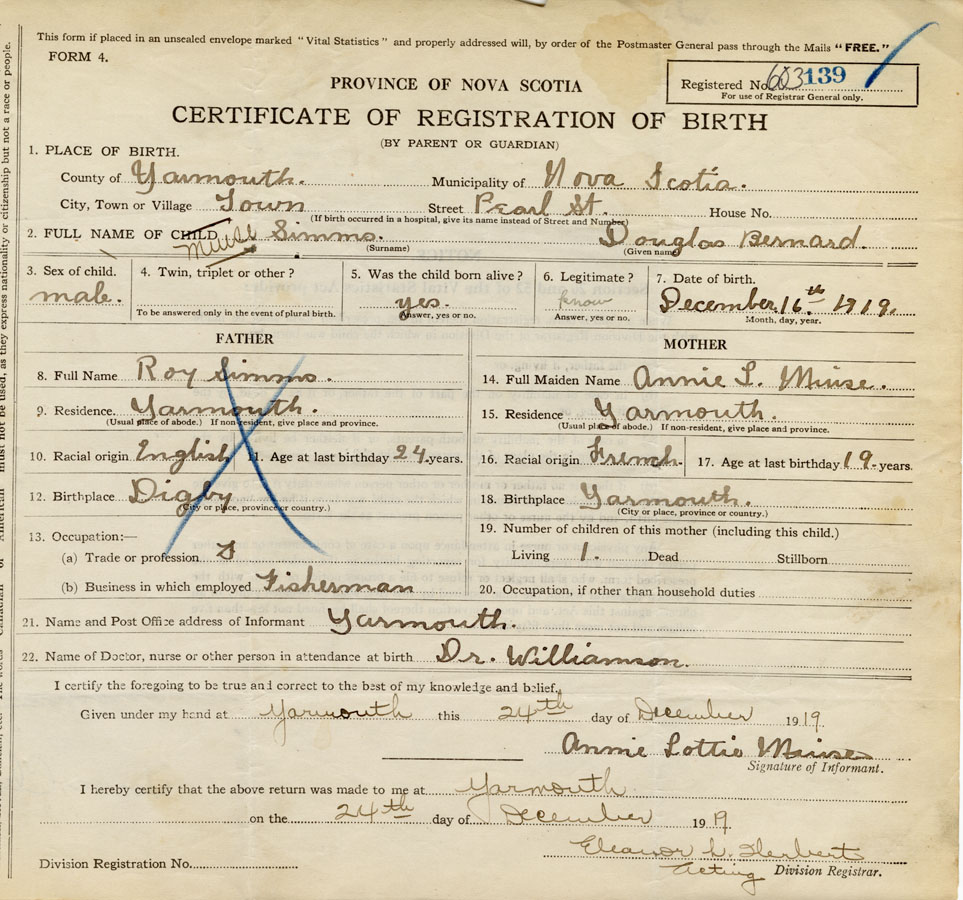 This form if placed in an unsealed envelope marked "Vital Statistics" and properly addressed will, by order of the Postmaster General pass through the Mails "FREE."
FORM 4.
PROVINCE OF NOVA SCOTIA
Registered No. 603139
For use of Registrar General only.
CERTIFICATE OF REGISTRATION OF BIRTH
(BY PARENT OR GUARDIAN)
1. PLACE OF BIRTH.
County of Yarmouth. Municipality of Nova Scotia.
City, Town or Village Town Street Pearl St. House No.
(If birth occurred in a hospital, give its name instead of Street and Number)
2. FULL NAME OF CHILD Muise Simms. Douglas Bernard.
(Surname) (Given name)
3. Sex of child. 4. Twin, triplet or other? 5. Was the child born alive? 6. Legitimate? 7. Date of birth.
male. yes. know December 16th 1919.
To be answered only in the event of plural birth. Answer, yes or no. Answer, yes or no. Month, day, year.
FATHER
8. Full Name Roy Simms.
9. Residence. Yarmouth.
(Usual place of abode.) If non-resident, give place and province.
10. Racial origin English 11. Age at last birthday 24 years.
12. Birthplace Digby
(City or place, province or country.)
13. Occupation:—
(a) Trade or profession
(b) Business in which employed Fisherman
MOTHER
14. Full Maiden Name Annie L. Muise.
15. Residence Yarmouth.
(Usual place of abode.) If non-resident, give place and province.
16. Racial origin French. 17. Age at last birthday 19 years.
18. Birthplace Yarmouth.
(City or place, province or country.)
19. Number of children of this mother (including this child.)
Living 1. Dead Stillborn
20. Occupation, if other than household duties
21. Name and Post Office address of Informant Yarmouth.
22. Name of Doctor, nurse or other person in attendance at birth Dr. Williamson.
I certify the foregoing to be true and correct to the best of my knowledge and belief.
Given under my hand at Yarmouth this 24th day of December 1919.
Annie Lottie Muise
Signature of Informant.
I hereby certify that the above return was made to me at Yarmouth
on the 24th day of December 1919
Eleanor L. Herbert
Division Registration No. Acting Division Registrar.